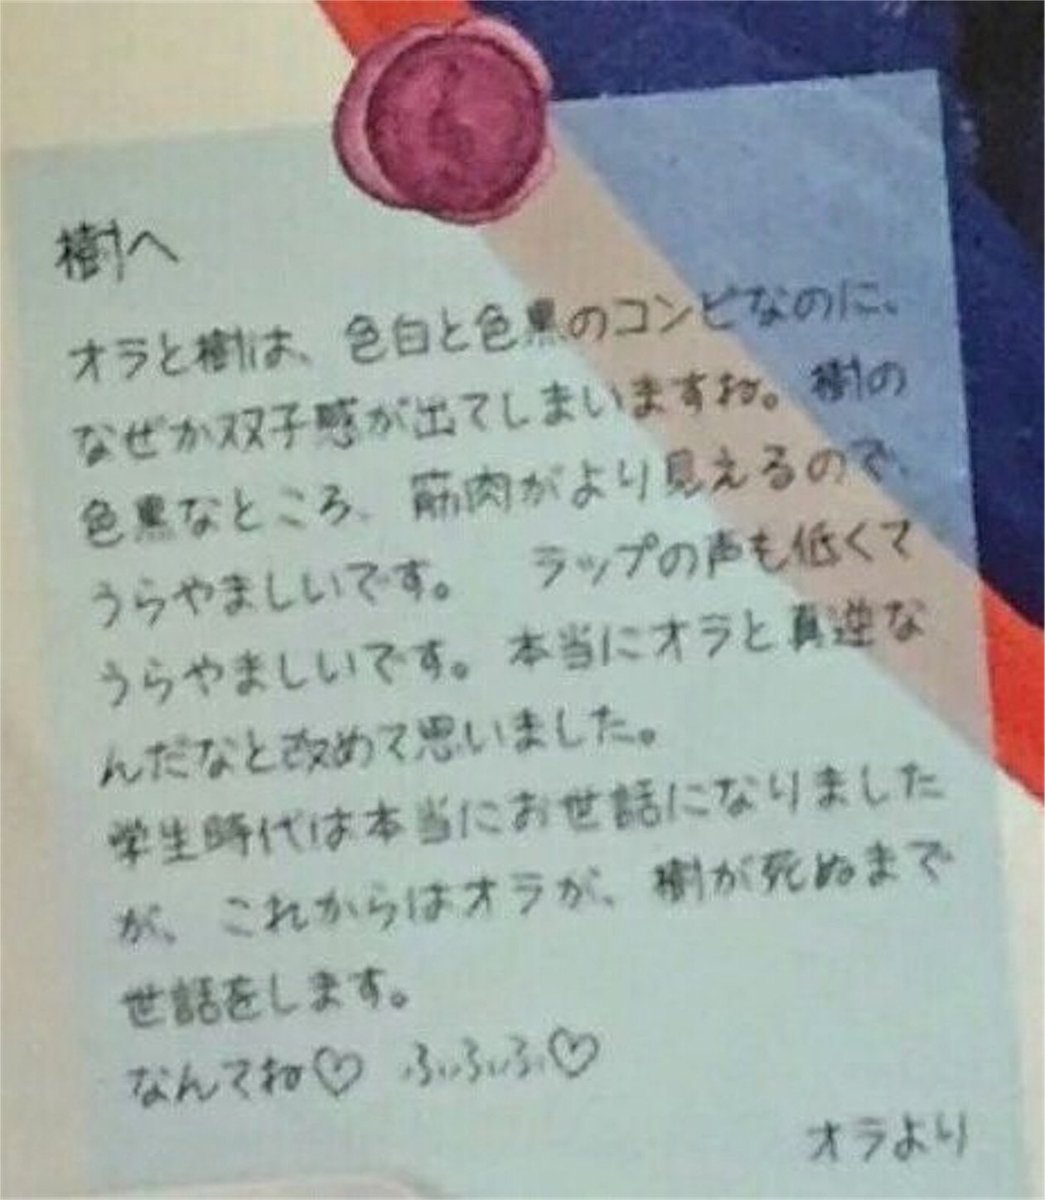 樹へ
オラと樹は、色白と色黒のコンビなのに、
なぜか双子感が出てしまいますね。樹の
色黒なところ、筋肉がより見えるので、
うらやましいです。 ラップの声も低くて
うらやましいです。本当にオラと真逆な
んだなと改めて思いました。
学生時代は本当にお世話になりました
が、これからはオラが、樹が死ぬまで
世話をします。
なんてね♡ ふふふ♡
オラより